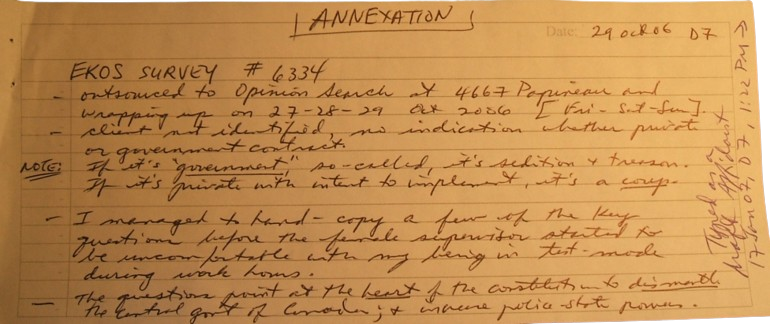 ANNEXATION
Date: 29 Oct 06 D7
EKOS SURVEY # 6334
- outsourced to Opinion Search at 4667 Papineau and
wrapping up on 27-28-29 Oct 2006 [Fri-Sat-Sun].
- client not identified, no indication whether private
or government contract.
NOTE: If it's "government", so-called, it's sedition & treason.
If it's private with intent to implement, it's a coup.
- I managed to hand-copy a few of the key
questions before the female supervisor started to
be uncomfortable with my being in test-mode
during work hours.
- The questions point at the heart of the constitution to dismantle
the central govt of Canada; & increase police-state powers.
Typed as a
Draft Affidavit
17 Jan 07, D7, 1:22 PM →